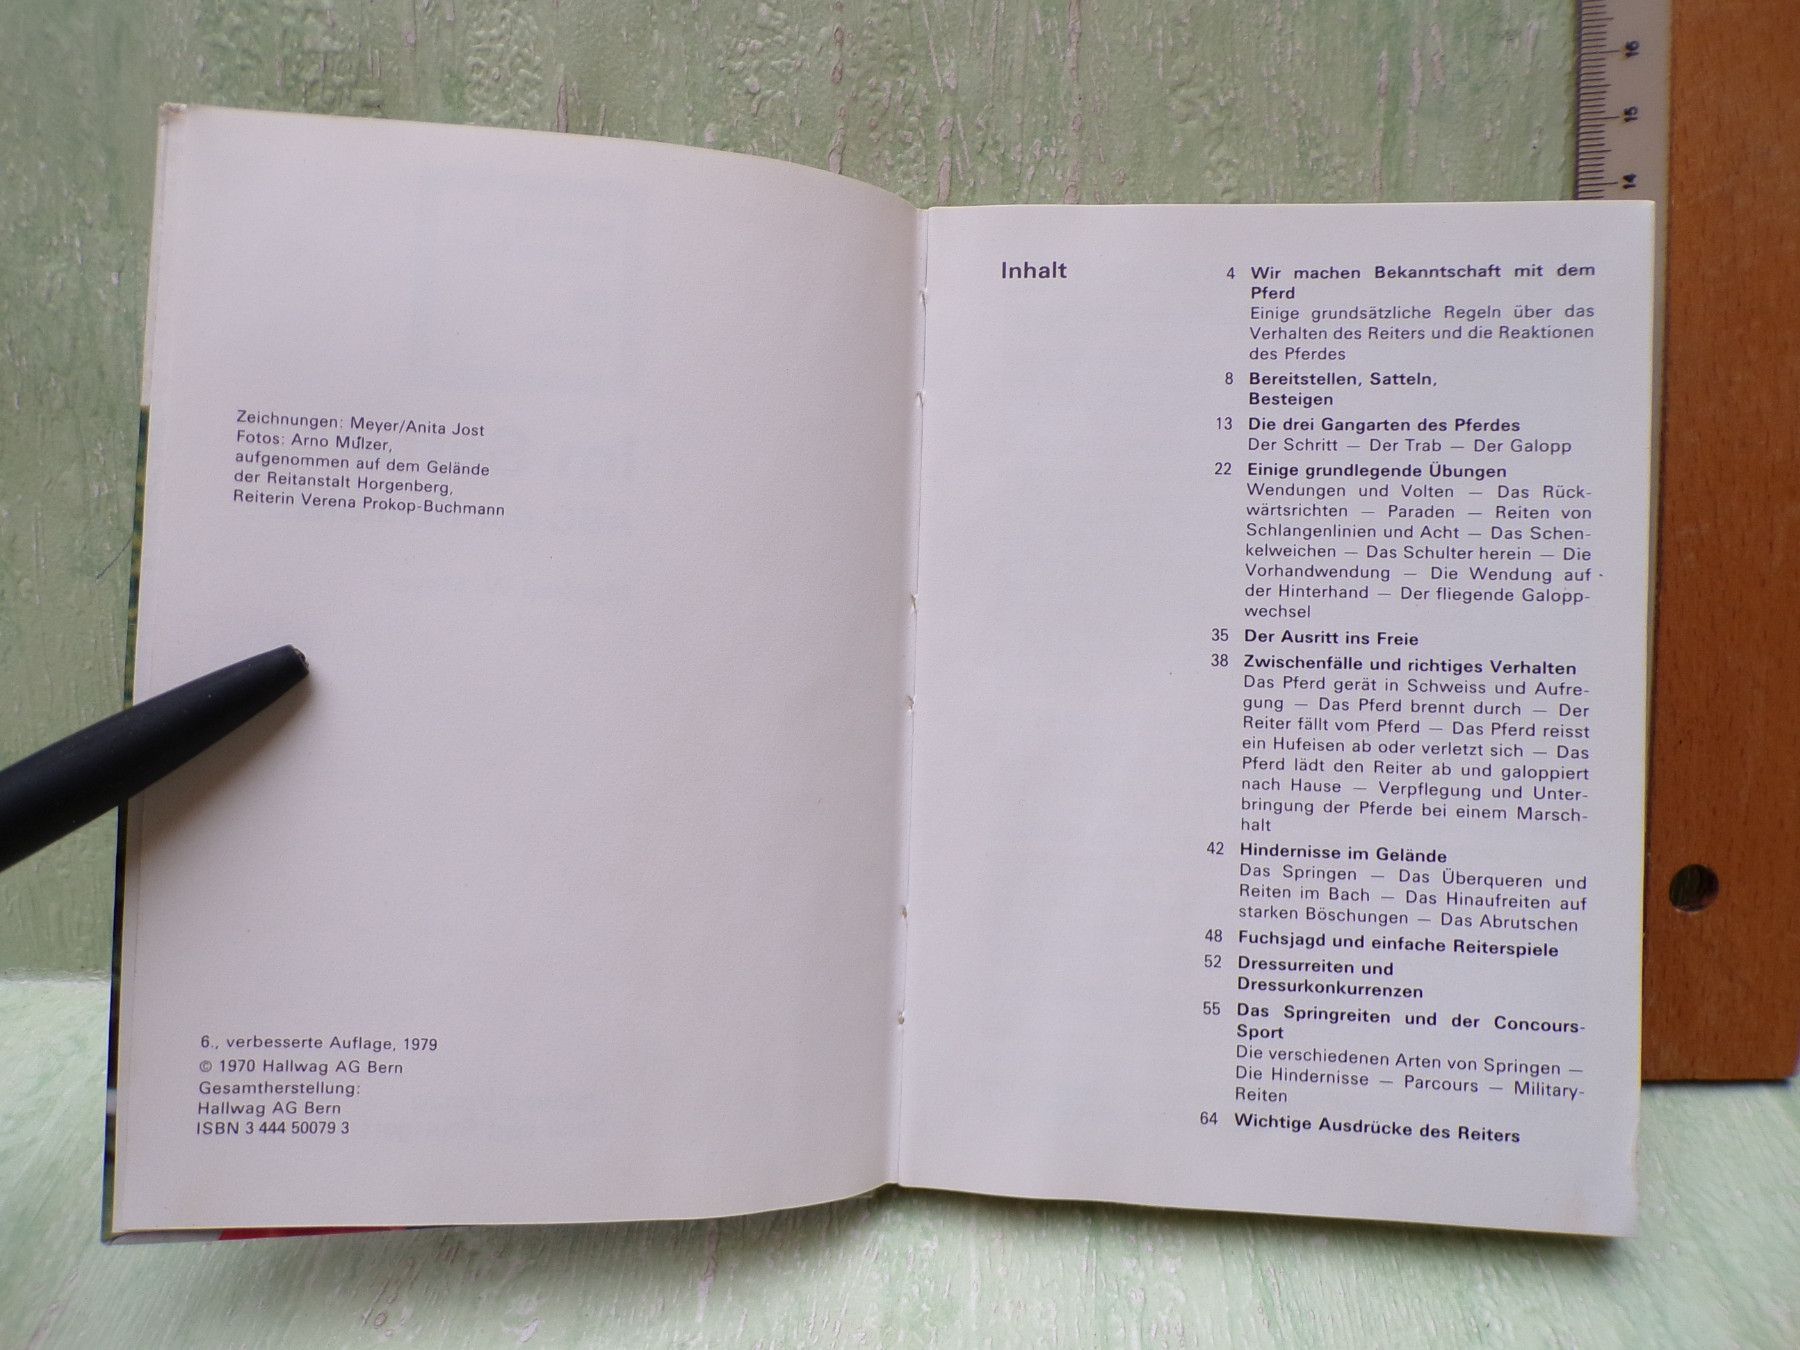 Zeichnungen: Meyer/Anita Jost
Fotos: Arno Mulzer,
aufgenommen auf dem Gelände
der Reitanstalt Horgenberg,
Reiterin Verena Prokop-Buchmann
6., verbesserte Auflage, 1979
© 1970 Hallwag AG Bern
Gesamtherstellung:
Hallwag AG Bern
ISBN 3 444 50079 3
Inhalt
4 Wir machen Bekanntschaft mit dem
Pferd
Einige grundsätzliche Regeln über das
Verhalten des Reiters und die Reaktionen
des Pferdes
8 Bereitstellen, Satteln,
Besteigen
13 Die drei Gangarten des Pferdes
Der Schritt — Der Trab — Der Galopp
22 Einige grundlegende Übungen
Wendungen und Volten — Das Rück-
wärtsrichten — Paraden — Reiten von
Schlangenlinien und Acht — Das Schen-
kelweichen — Das Schulter herein — Die
Vorhandwendung — Die Wendung auf
der Hinterhand — Der fliegende Galopp-
wechsel
35 Der Ausritt ins Freie
38 Zwischenfälle und richtiges Verhalten
Das Pferd gerät in Schweiss und Aufre-
gung — Das Pferd brennt durch — Der
Reiter fällt vom Pferd — Das Pferd reisst
ein Hufeisen ab oder verletzt sich — Das
Pferd lädt den Reiter ab und galoppiert
nach Hause — Verpflegung und Unter-
bringung der Pferde bei einem Marsch-
halt
42 Hindernisse im Gelände
Das Springen — Das Überqueren und
Reiten im Bach — Das Hinaufreiten auf
starken Böschungen — Das Abrutschen
48 Fuchsjagd und einfache Reiterspiele
52 Dressurreiten und
Dressurkonkurrenzen
55 Das Springreiten und der Concours-
Sport
Die verschiedenen Arten von Springen —
Die Hindernisse — Parcours — Military-
Reiten
64 Wichtige Ausdrücke des Reiters
16
15
14